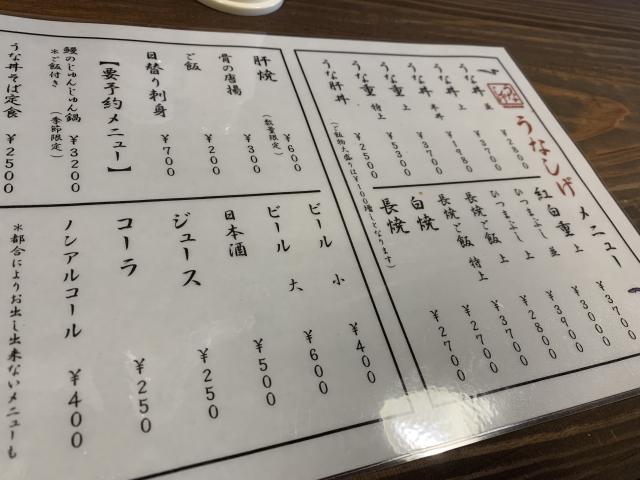 うなしげ メニュー
うな丼 並 ¥2800
うな丼 上 ¥3700
うな丼 半丼 ¥1980
うな重 上 ¥3700
うな重 特上 ¥5300
うな肝丼 ¥2500
(ご飯物大盛りは¥100増しとなります)
紅白重 上 ¥3700
ひつまぶし 並 ¥3000
ひつまぶし 上 ¥3900
長焼ご飯 上 ¥2800
長焼ご飯 特上 ¥3700
白焼 ¥2700
長焼 ¥2700
肝焼 (数量限定) ¥600
骨の唐揚 ¥300
ご飯 ¥200
日替り刺身 ¥700
【要予約メニュー】
鰻のじゅんじゅん鍋 ¥3200
*ご飯付き (季節限定)
うな丼そば定食 ¥2500
ビール 小 ¥400
ビール 大 ¥600
日本酒 ¥500
ジュース ¥250
コーラ ¥250
ノンアルコール ¥400
*都合によりお出し出来ないメニューも